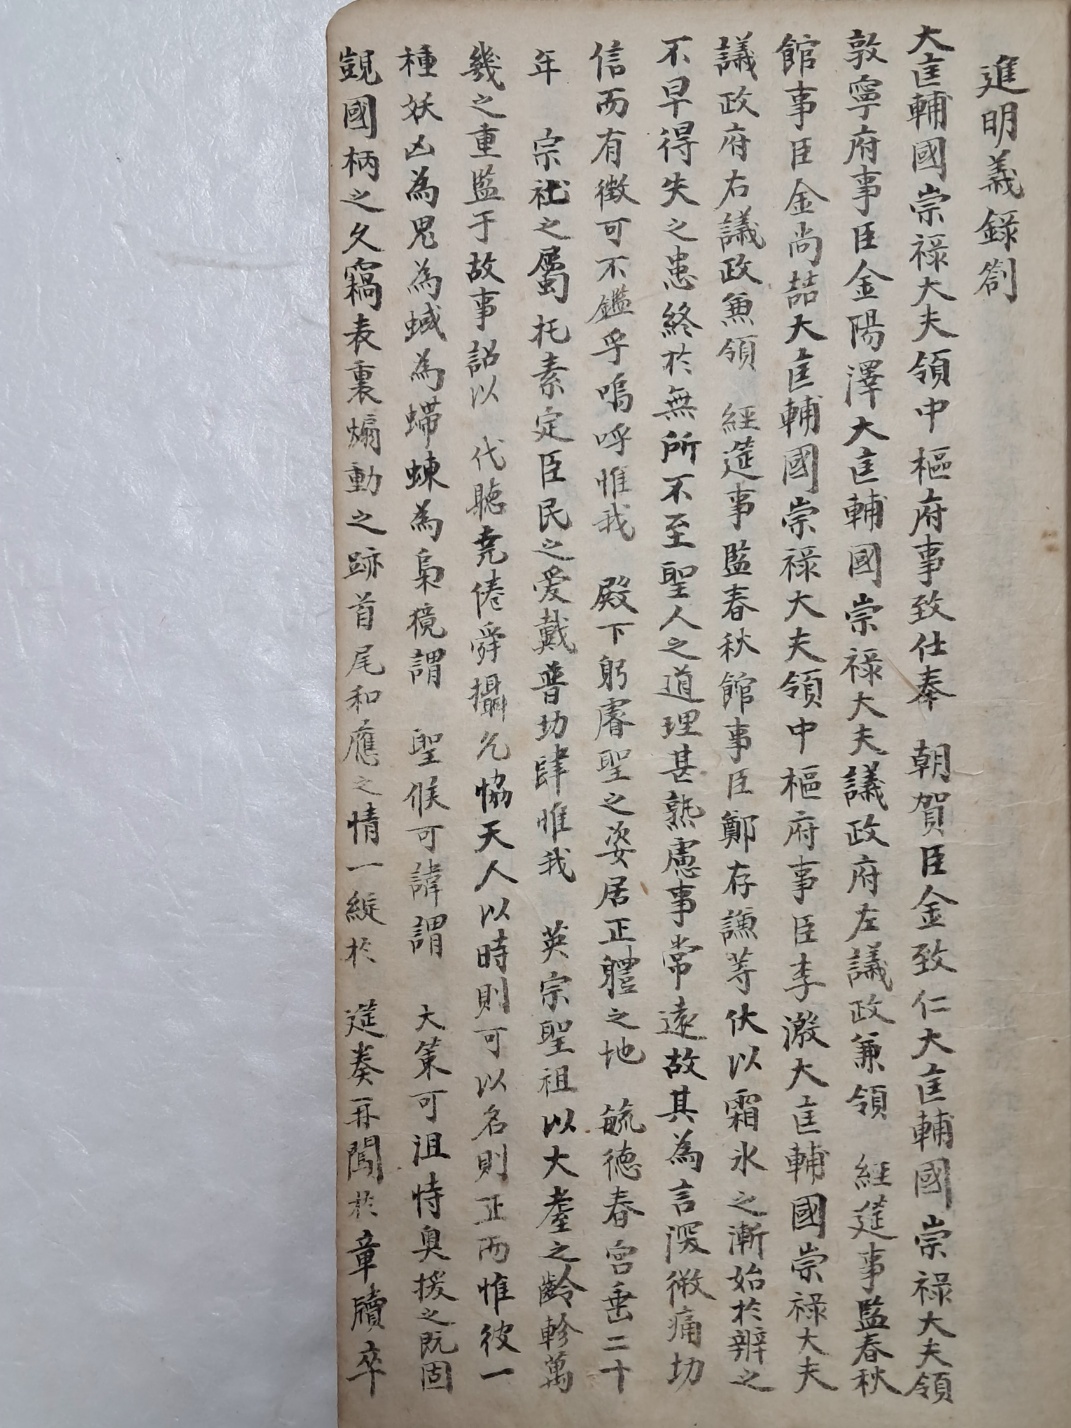 進明義錄劄
大匡輔國崇祿大夫領中樞府事致仕奉　朝賀臣金致仁大匡輔國崇祿大夫領
敦寧府事臣金陽澤大匡輔國崇祿大夫議政府左議政兼領　經筵事監春秋
館事臣金尚喆大匡輔國崇祿大夫領中樞府事臣李溵大匡輔國崇祿大夫
議政府右議政兼領　經筵事監春秋館事臣鄭存謙等伏以霜氷之漸始於辨之
不早得失之患終於無所不至聖人之道理甚熟慮事常遠故其為言深微痛切
信而有徵可不鑑乎嗚呼惟我　殿下躬睿聖之姿居正軆之地　毓德春宮垂二十
年　宗社之屬托素定臣民之愛戴普切肆惟我　英宗聖祖以大耋之齡軫萬
幾之重監于故事詔以　代聽堯倦舜攝允恊天人以時則可以名則正而惟彼一
種妖凶為鬼為蜮為螮蝀為梟獍謂　聖候可諱謂　大策可沮恃奧援之既固
覬國柄之久竊表裏煽動之跡首尾和應之情一綻於　筵奏再闖於章牘卒